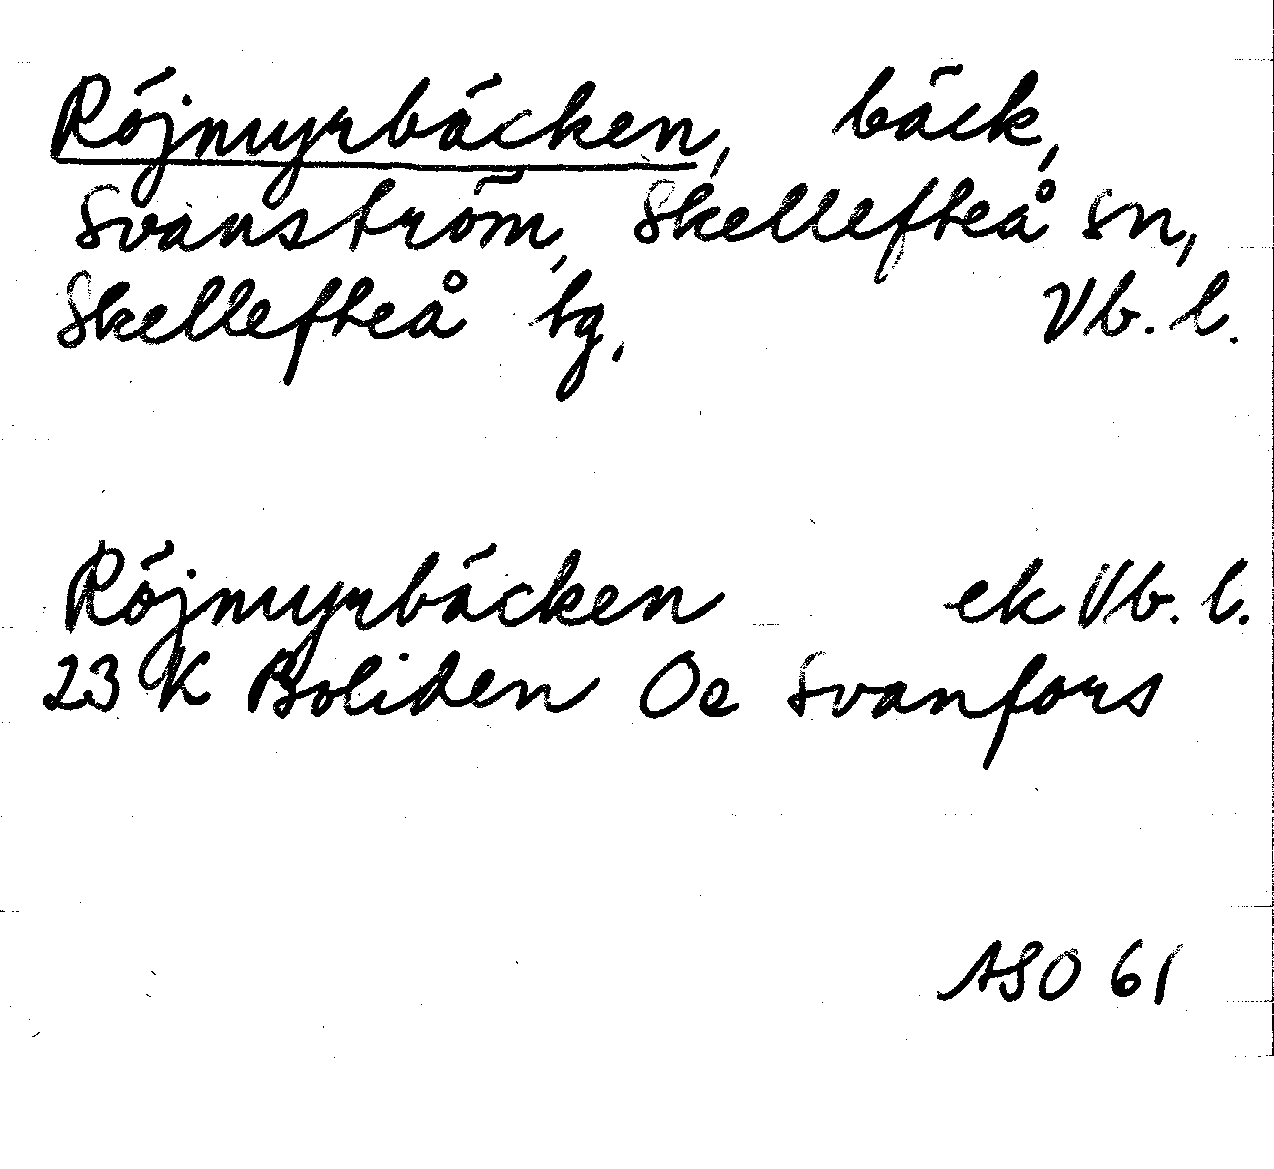 Röjmyrbäcken, bäck,
Svanström, Skellefteå sn,
Skellefteå tg, Vb. l.
Röjmyrbäcken ek Vb. l.
23 K Boliden Oe Svanfors
ASO 61